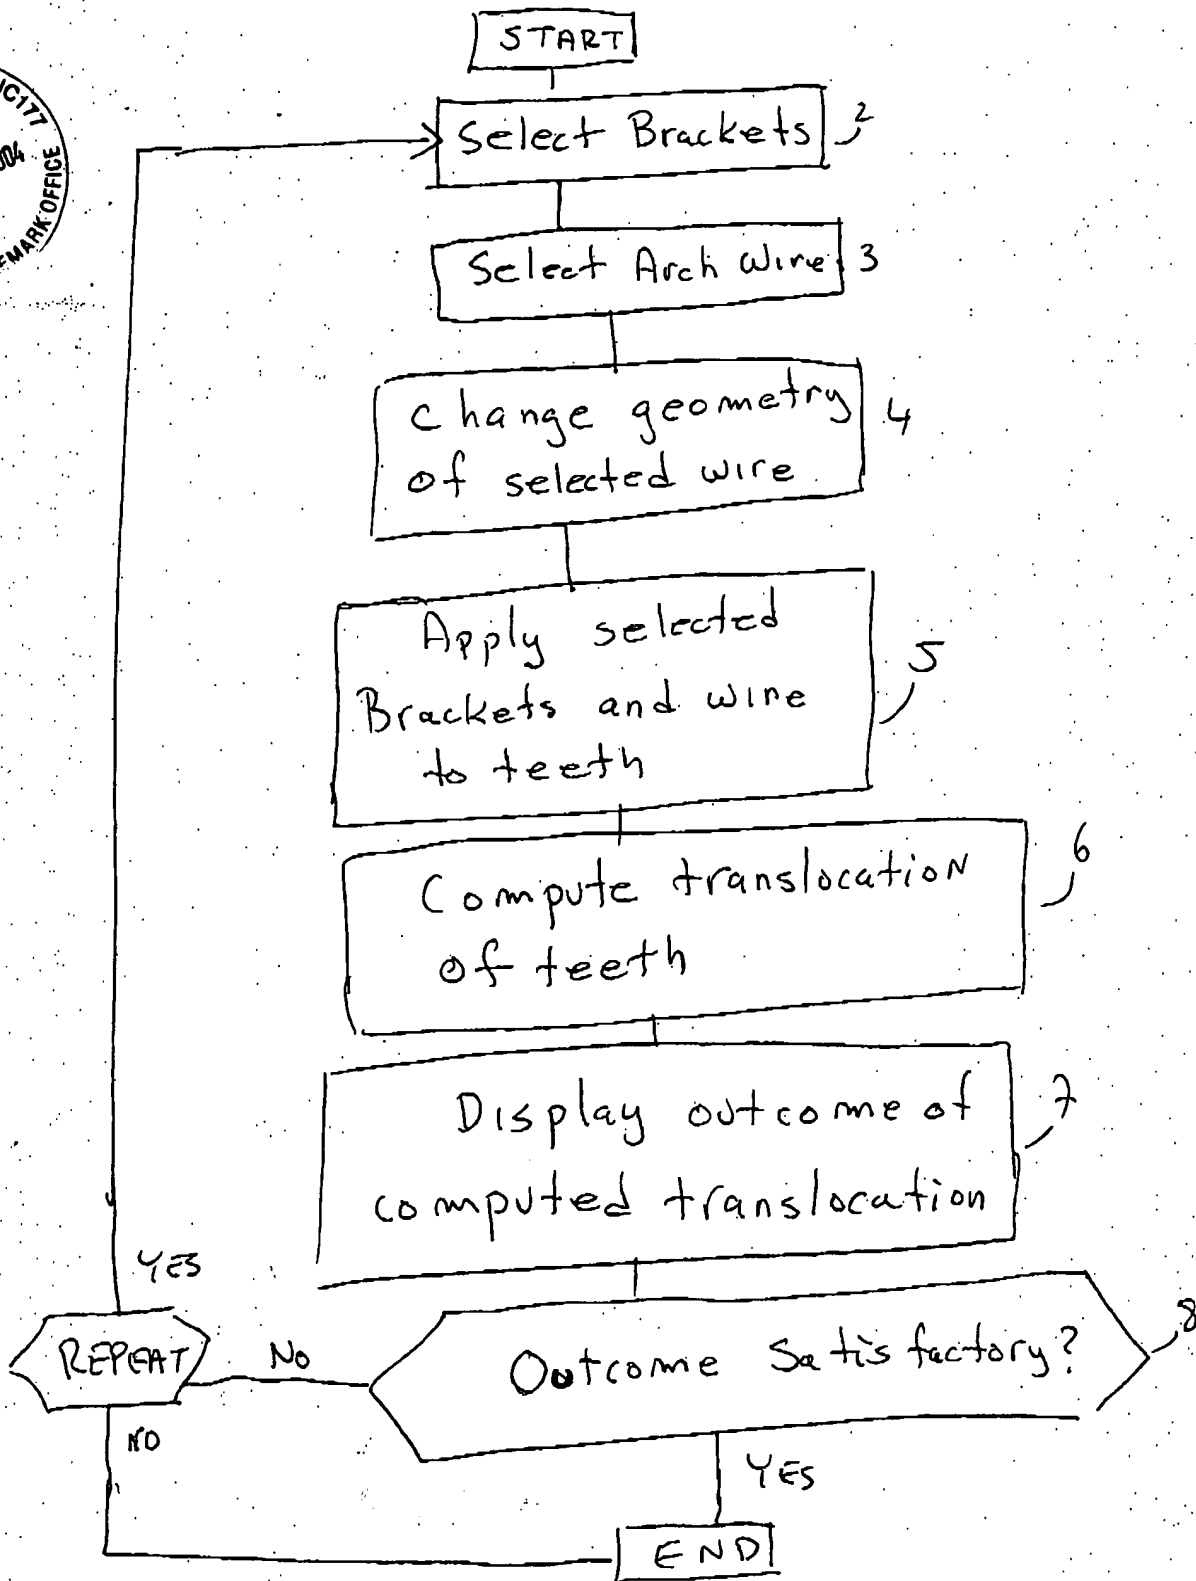 START
Select Brackets 2
Select Arch Wire 3
Change geometry 4
of selected wire
Apply selected
Brackets and wire 5
to teeth
Compute translocation 6
of teeth
Display outcome of 7
computed translocation
YES
REPEAT
No
Outcome Satisfactory? 8
NO
YES
END
EMARK OFFICE